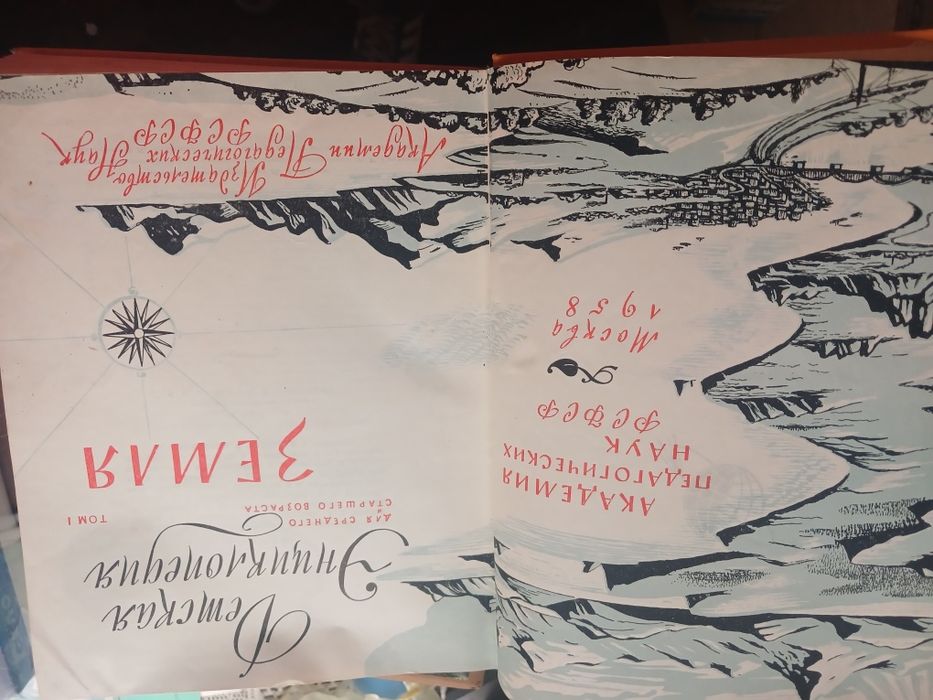 АКАДЕМИЯ
ПЕДАГОГИЧЕСКИХ
НАУК
РСФСР
Москва
1958
Детская
Энциклопедия
ДЛЯ СРЕДНЕГО
И
СТАРШЕГО ВОЗРАСТА
ТОМ I
ЗЕМЛЯ
Издательство
Академии Педагогических Наук
РСФСР